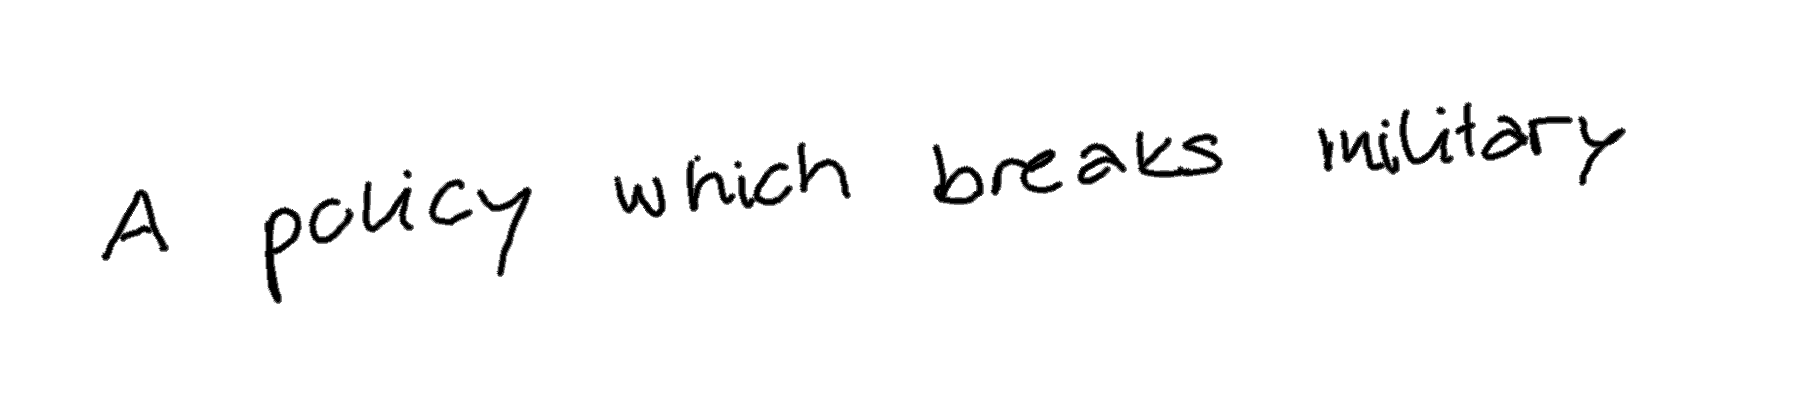 A policy which breaks military